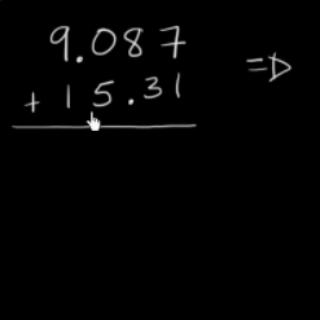 9.087
+ 15.31
⇒